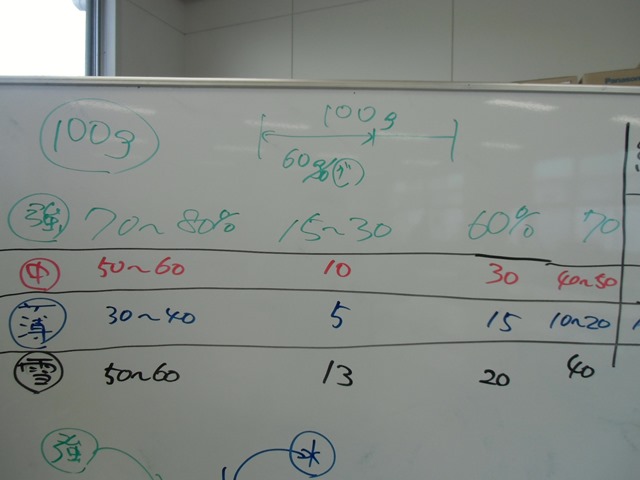 100g
100g
60g
強 70~80% 15~30 60% 70
中 50~60 10 30 40~50
薄 30~40 5 15 10~20
雪 50~60 13 20 40
強 水
Panasonic